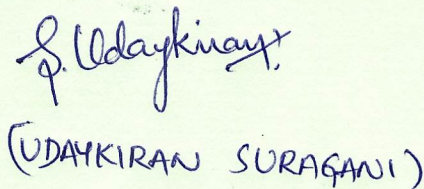 S. Udaykiran
(UDAYKIRAN SURAGANI)